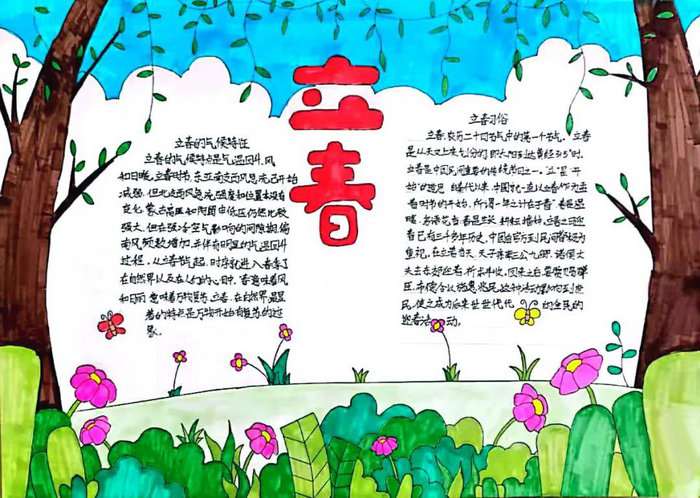 立春
立春的气候特征
立春的气候特点是气温回升、风
和日暖。立春时节,东亚南支西风急流已开始
减弱,但北支西风急流强度和位置基本没有
变化,蒙古高压和阿留申低压仍然比较
强大,但在强冷空气影响的间隙期,偏
南风频数增加,并伴有明显的气温回升
过程,从立春节气起,时序就进入春季了
在自然界以及在人们的心目中,春意味着风
和日丽,意味着万物复苏。立春,在自然界最显
著的特征是万物开始有复苏的迹
象。
立春习俗
立春,农历二十四节气中的第一个节气。立春
是从天文上来划分的,即太阳到达黄经315°时。
立春是中国民间重要的传统节日之一。"立"是"开
始"的意思,自秦代以来,中国就一直以立春作为
春时节的开始,所谓"一年之计在于春"春是温
暖,鸟语花香;春是生长,耕耘播种。立春之日迎
春已有三千多年历史,中国自官方到民间都极为
重视,在立春当天,天子亲率三公九卿、诸侯大
夫去东郊迎春,祈求丰收。回来之后,要赏赐群
臣,布德令以施惠兆民。这种活动影响到庶
民,使之成为后来世世代代的全民的
迎春活动。